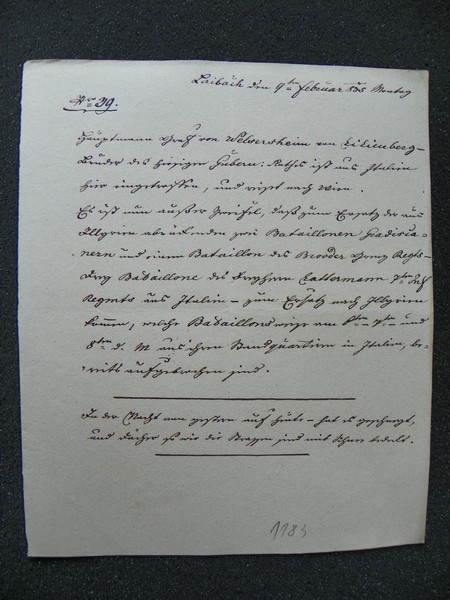 Laibach den 9ten Februar 835 Montag
Nro 29.
Hauptmann Graf von Welsersheim von Lilienberg-
Bruder des hiesigen Gubern: Raths ist aus Italien
hier eingetroffen, und reiset nach Wien.
Es ist nun außer Zweifel, daß zum Ersatz der aus
Illyrien abrückenden zwei Bataillonen Gradisca-
nern und einem Bataillon des Brooder Grenz Regts-
drey Bataillone des Freyherrn Lattermann 7ten Inf
Regmts aus Italien - zum Ersatz nach Illyrien
kommen, welche Bataillonsweise am 6ten 7ten und
8ten d. M aus ihren Standquartieren in Italien, be-
reits aufgebrochen sind.
In der Nacht von gestern auf heute - hat es geschneyt,
und Dächer so wie die Strassen sind mit Schnee bedekt.
1183